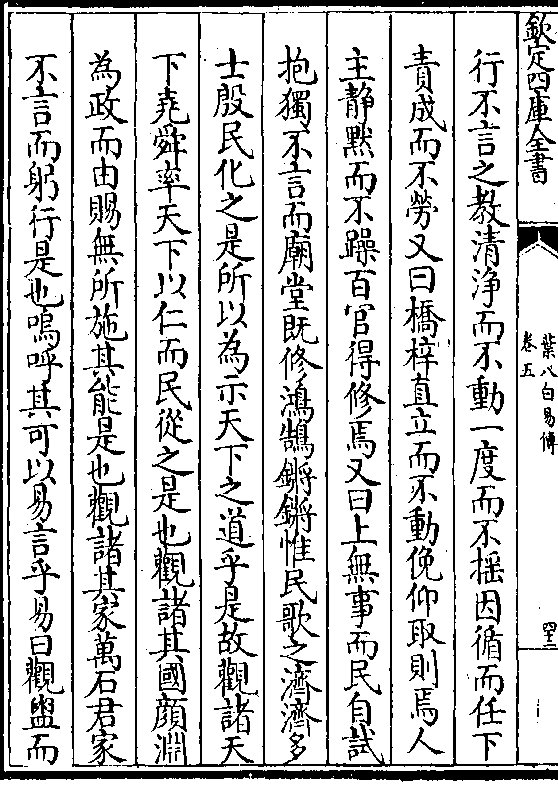 欽定四庫全書
葉八白易傳
卷五
四三
行不言之教清浄而不動一度而不揺因循而任下
責成而不勞又曰橋梓直立而不動俛仰取則焉人
主静黙而不躁百官得修焉又曰上無事而民自試
抱獨不言而廟堂既修鴻鵠鏘鏘惟民歌之濟濟多
士殷民化之是所以為示天下之道乎是故觀諸天
下堯舜率天下以仁而民從之是也觀諸其國顔淵
為政而由賜無所施其能是也觀諸其家萬石君家
不言而躬行是也嗚呼其可以易言乎易曰觀盥而